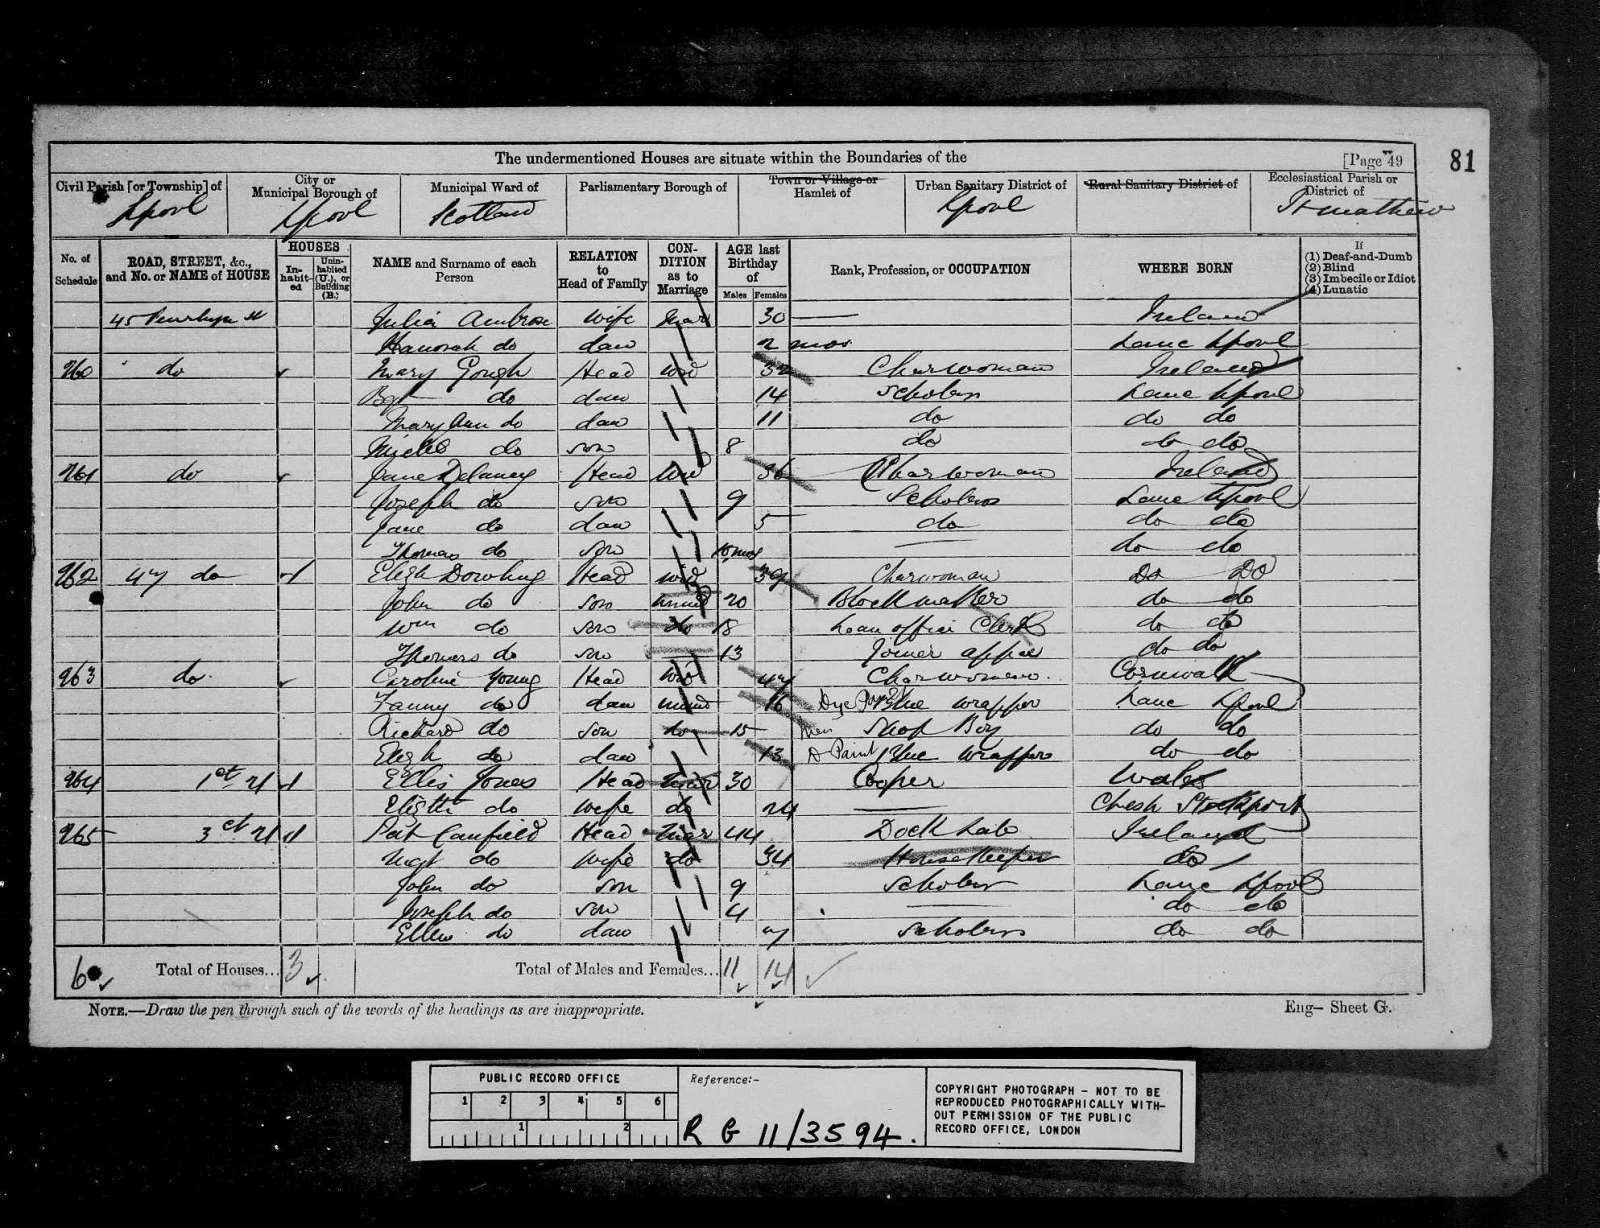 The undermentioned Houses are situate within the Boundaries of the [Page 49 81
Civil Parish [or Township] of City or Municipal Borough of Municipal Ward of Parliamentary Borough of Town or Village or Hamlet of Urban Sanitary District of Rural Sanitary District of Ecclesiastical Parish or District of
Lpool Lpool Scotland Lpool St Mathew
No. of Schedule ROAD, STREET, &c., and No. or NAME of HOUSE HOUSES Inhabited Uninhabited (U.), or Building (B.) NAME and Surname of each Person RELATION to Head of Family CONDITION as to Marriage AGE last Birthday of Males Females Rank, Profession, or OCCUPATION WHERE BORN If (1) Deaf-and-Dumb (2) Blind (3) Imbecile or Idiot (4) Lunatic
45 Penrhyn St Julia Ambrose Wife Mar 30 Ireland
Hanorah do daw 2 mos Lanc Lpool
260 do Mary Gough Head Wid Charwoman Ireland
do daw 14 Scholars Lanc Lpool
Mary Ann do daw 11 do do do
do son 8 do do do
261 do Jane Delaney Head Wid 36 Charwoman Ireland
Joseph do son 9 Scholars Lanc Lpool
Jane do daw 5 do do do
Thomas do son 10 mos do do
262 47 do Elizh Dowling Head Wid 39 Charwoman Do Do
John do son unmd 20 Block maker do do
Wm do son do 18 Loan office Clerk do do
Thomas do son 13 Joiner appce do do
263 do Caroline Young Head Wid 47 Charwoman Cornwall
Fanny do daw unmd 16 Dye Blue wrapper Lanc Lpool
Richard do son do 15 Shop Boy do do
Elizh do daw 13 D Paint Blue Wrapper do do
264 1 ct 4 Ellis Jones Head Mar 30 Cooper Wales
Elizth do Wife do 24 Chesh Stockport
265 3 ct 4 Pat Canfield Head Mar 44 Dock Lab Ireland
Margt do Wife do 34 Housekeeper do
John do son 9 Scholar Lanc Lpool
Joseph do son 4 do do
Ellen do daw 7 Scholars do do
6 Total of Houses... 3 Total of Males and Females... 11 14
NOTE.—Draw the pen through such of the words of the headings as are inappropriate. Eng— Sheet G.
PUBLIC RECORD OFFICE
1 2 3 4 5 6
1 2
Reference:-
RG 11/3594.
COPYRIGHT PHOTOGRAPH - NOT TO BE
REPRODUCED PHOTOGRAPHICALLY WITH-
OUT PERMISSION OF THE PUBLIC
RECORD OFFICE, LONDON